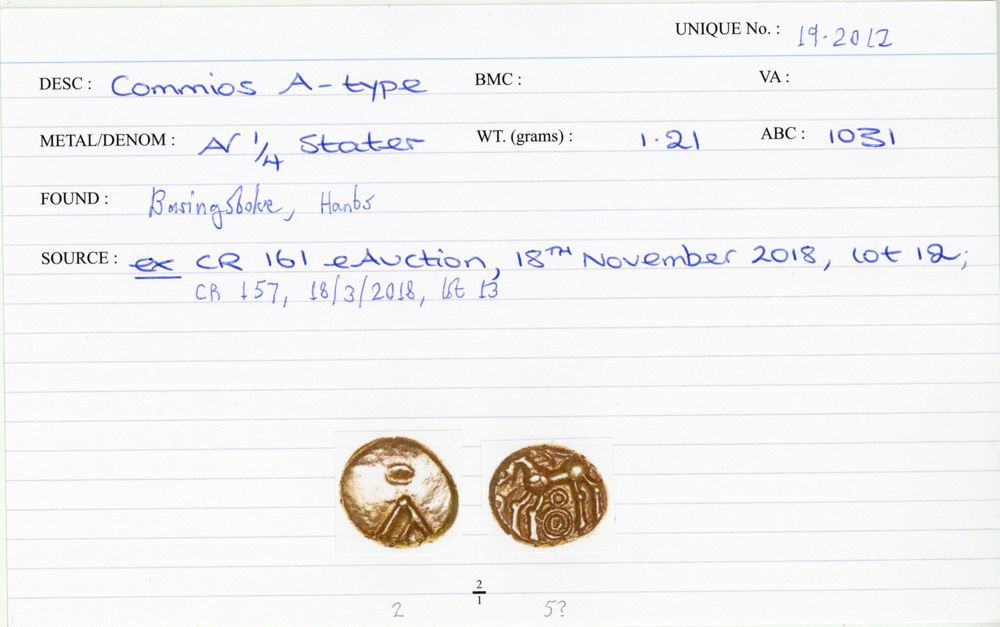 UNIQUE No. : 19.2012
DESC : Commios A-type BMC : VA :
METAL/DENOM : AV 1/4 Stater WT. (grams) : 1.21 ABC : 1031
FOUND : Basingstoke, Hants
SOURCE : ex CR 161 eAuction, 18TH November 2018, lot 12;
CR 157, 18/3/2018, lot 13
2/1
2 5?